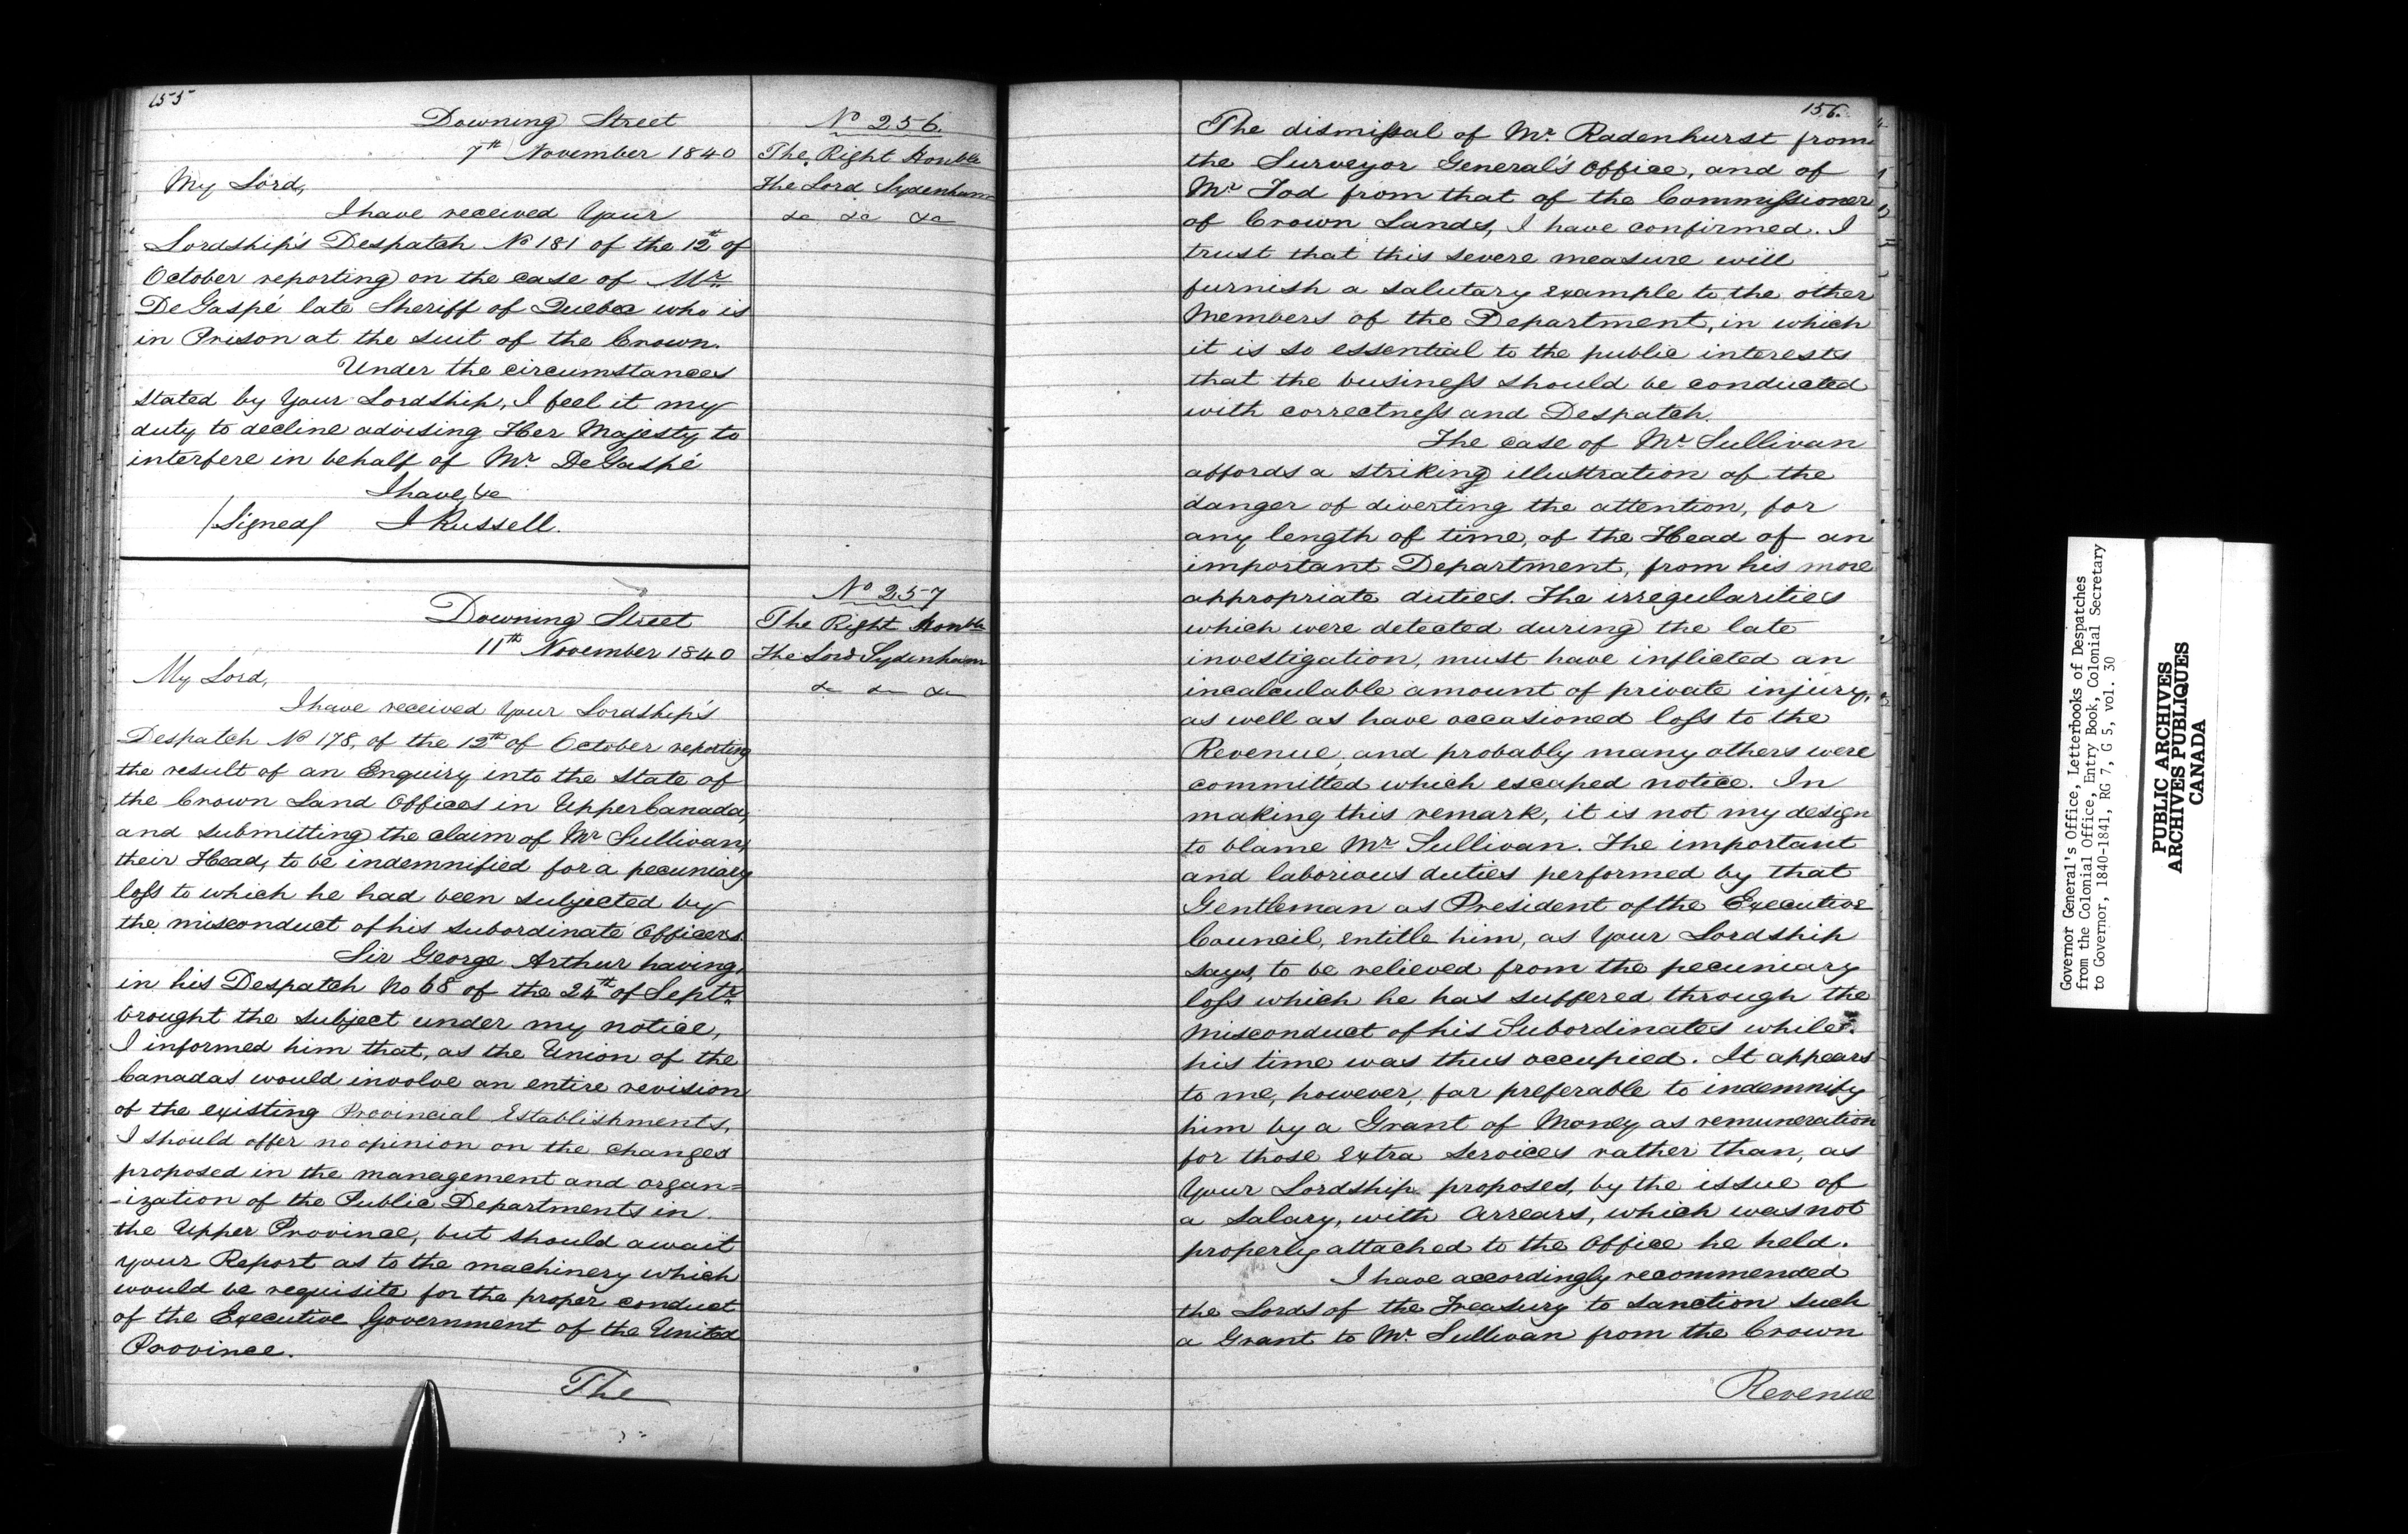 155
Downing Street
7th November 1840
My Lord,
I have received Your
Lordship's Despatch No 181 of the 12th of
October reporting on the case of Mr
DeGaspé late Sheriff of Quebec who is
in Prison at the suit of the Crown.
Under the circumstances
stated by Your Lordship, I feel it my
duty to decline advising Her Majesty to
interfere in behalf of Mr DeGaspé
I have &c
/Signed/ J Russell.
No 256
The Right Honble
The Lord Sydenham
&c &c &c
Downing Street
11th November 1840
My Lord,
I have received Your Lordship's
Despatch No 178, of the 12th of October reporting
the result of an Enquiry into the State of
the Crown Land Offices in Upper Canada,
and submitting the claim of Mr Sullivan,
their Head, to be indemnified for a pecuniary
loss to which he had been subjected by
the misconduct of his subordinate Officers.
Sir George Arthur having,
in his Despatch No 68 of the 24th of Septr
brought the subject under my notice,
I informed him that, as the Union of the
Canadas would involve an entire revision
of the existing Provincial Establishments,
I should offer no opinion on the changes
proposed in the management and organ=
-ization of the Public Departments in
the Upper Province, but should await
your Report as to the machinery which
would be requisite for the proper conduct
of the Executive Government of the United
Province.
The
No 257
The Right Honble
The Lord Sydenham
&c &c &c
156.
The dismissal of Mr Radenhurst from
the Surveyor General's Office, and of
Mr Tod from that of the Commissioner
of Crown Lands, I have confirmed. I
trust that this severe measure will
furnish a salutary example to the other
Members of the Department, in which
it is so essential to the public interests
that the business should be conducted
with correctness and Despatch.
The case of Mr Sullivan
affords a striking illustration of the
danger of diverting the attention, for
any length of time, of the Head of an
important Department, from his more
appropriate duties. The irregularities
which were detected during the late
investigation, must have inflicted an
incalculable amount of private injury,
as well as have occasioned loss to the
Revenue, and probably many others were
committed which escaped notice. In
making this remark, it is not my design
to blame Mr Sullivan. The important
and laborious duties performed by that
Gentleman as President of the Executive
Council, entitle him, as Your Lordship
says, to be relieved from the pecuniary
loss which he has suffered through the
misconduct of his Subordinates while
his time was thus occupied. It appears
to me, however, far preferable to indemnify
him by a Grant of Money as remuneration
for those Extra Services rather than, as
Your Lordship proposes, by the issue of
a Salary, with Arrears, which was not
properly attached to the Office he held.
I have accordingly recommended
the Lords of the Treasury to sanction such
a Grant to Mr Sullivan from the Crown
Revenue
Governor General's Office, Letterbooks of Despatches
from the Colonial Office, Entry Book, Colonial Secretary
to Governor, 1840-1841, RG 7, G 5, vol. 30
PUBLIC ARCHIVES
ARCHIVES PUBLIQUES
CANADA